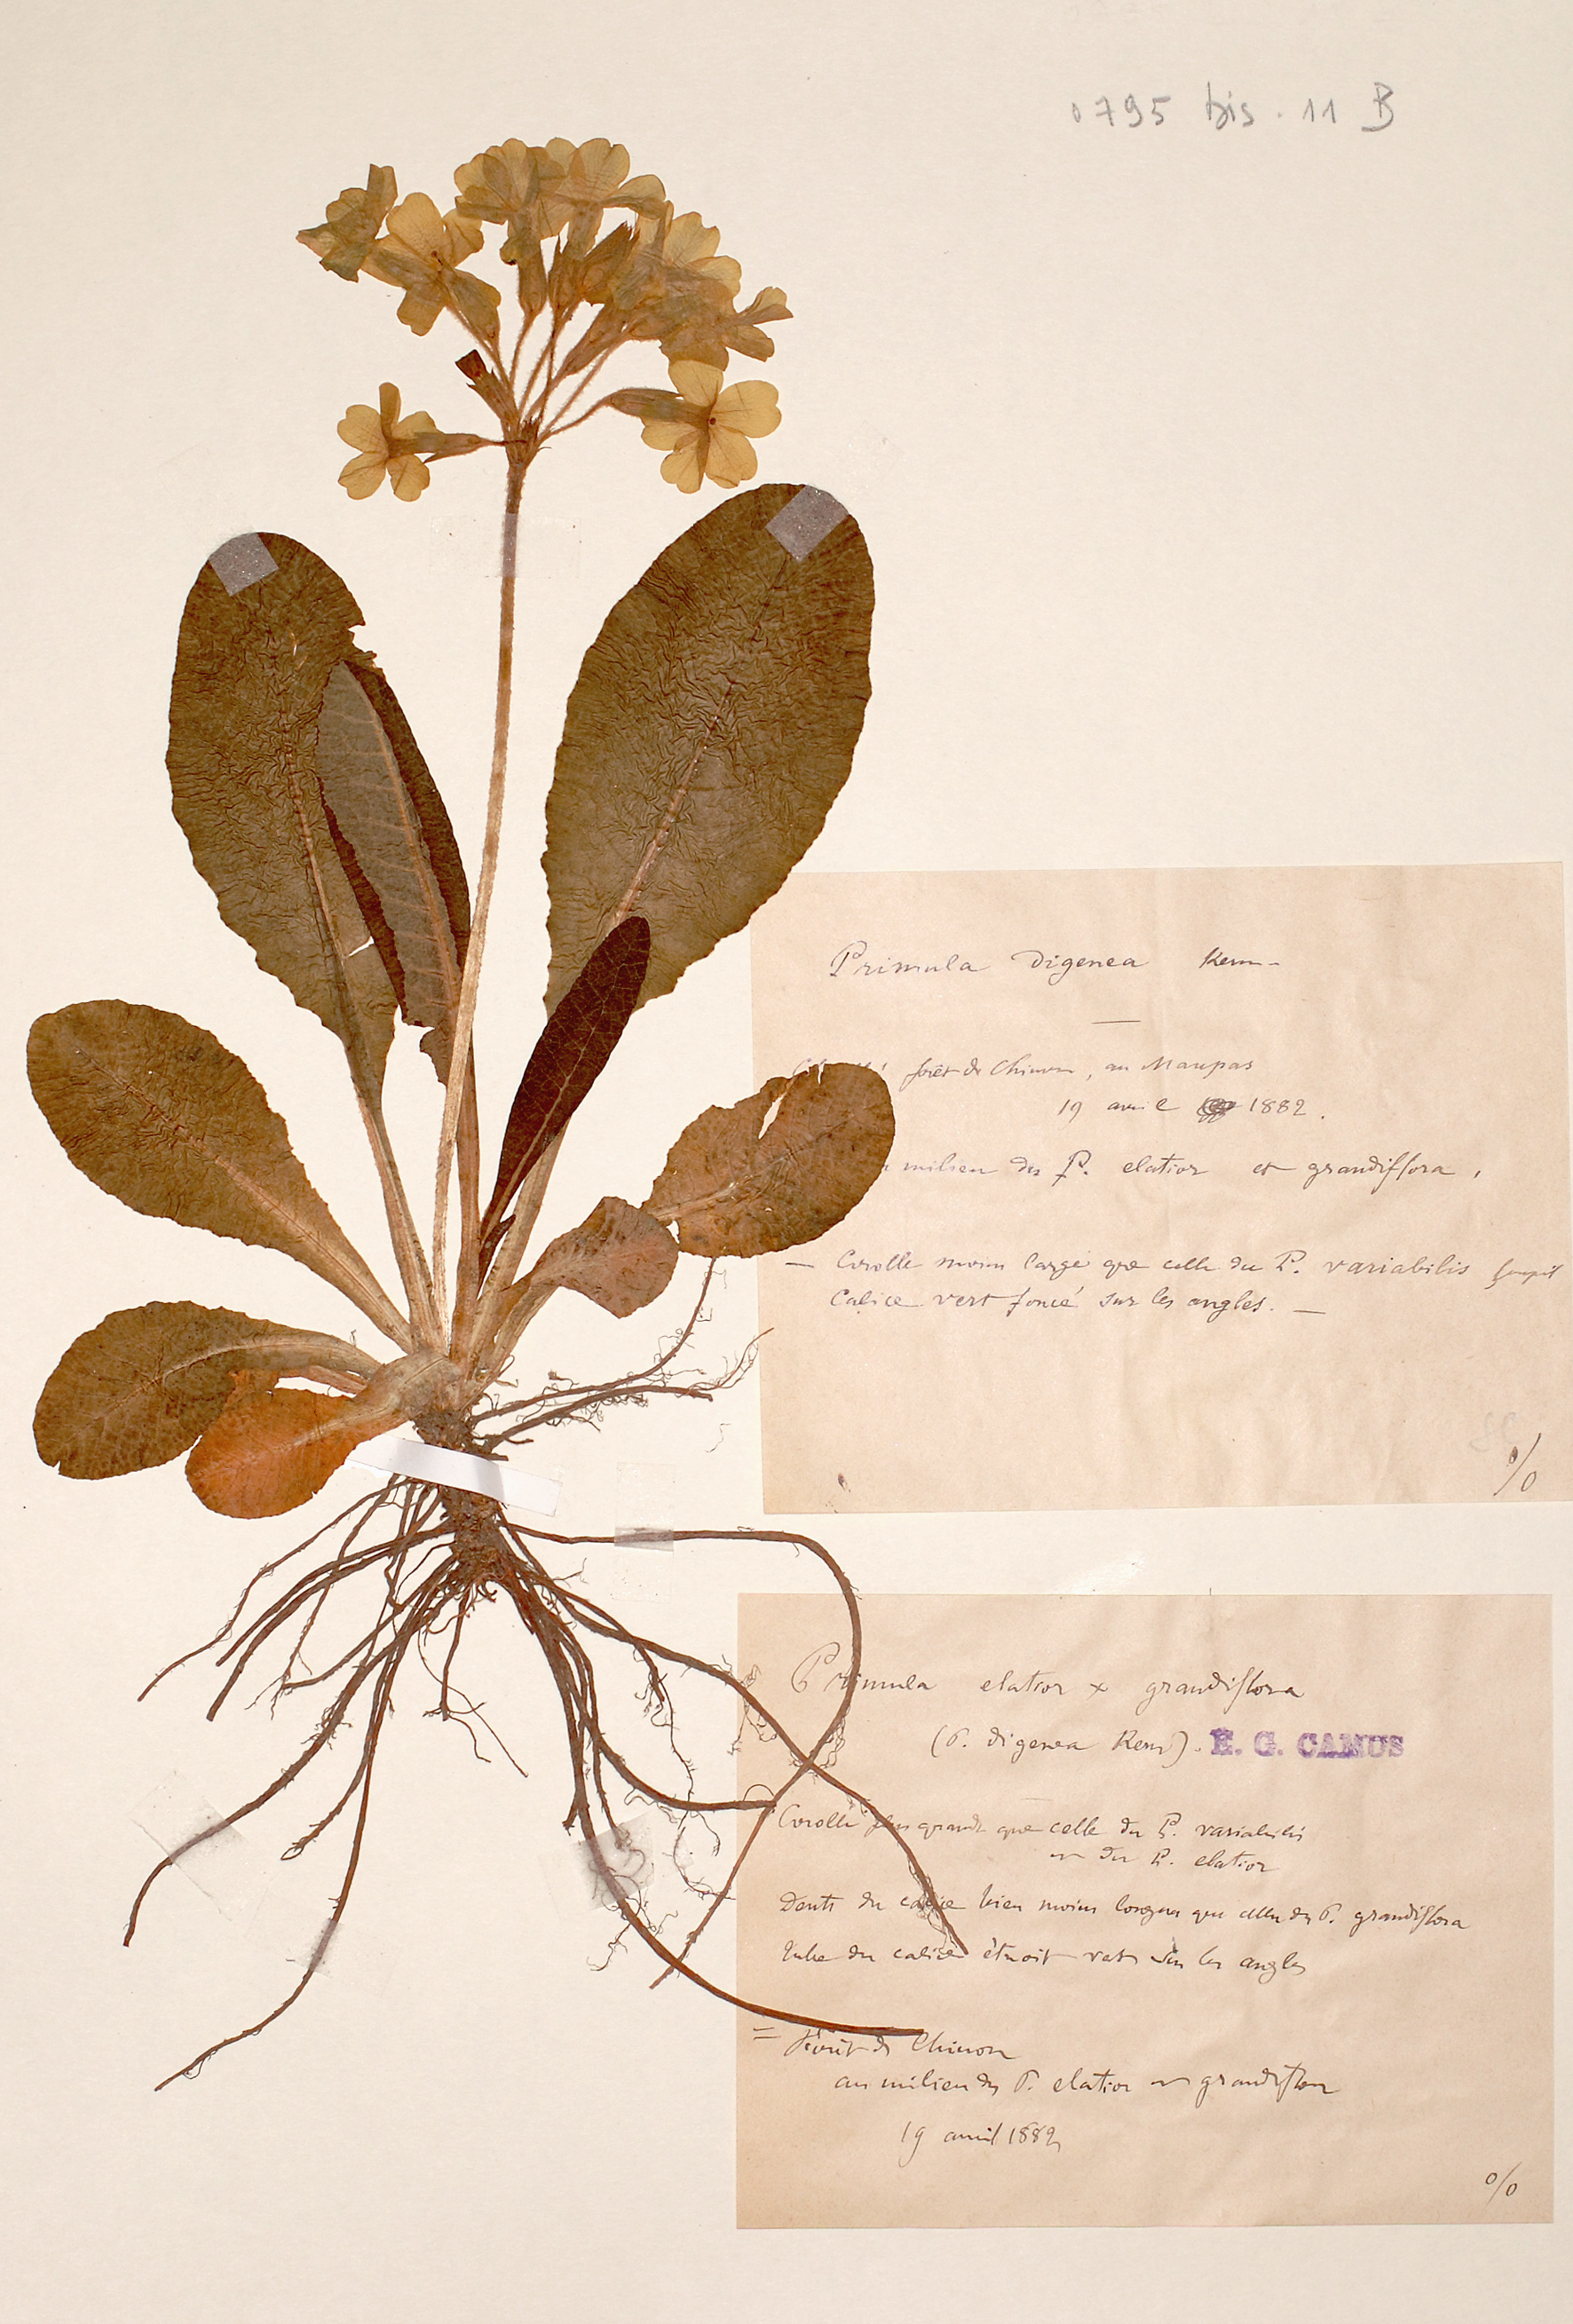 0795 bis. 11 B
Primula digenea Kern-
forêt de Chinon, au Maupas
19 avril 1882.
milieu des P. elatior et grandiflora,
— Corolle moins large que celle du P. variabilis Goupil
Calice vert foncé sur les angles. —
%
Primula elatior x grandiflora
(P. digenea Kern). E. G. CAMUS
Corolle plus grande que celle du P. variabilis
et du P. elatior
Dents du calice bien moins longues que celles du P. grandiflora
tube du calice étroit vert sur les angles
= Forêt de Chinon
au milieu des P. elatior et grandiflora
19 avril 1882
%